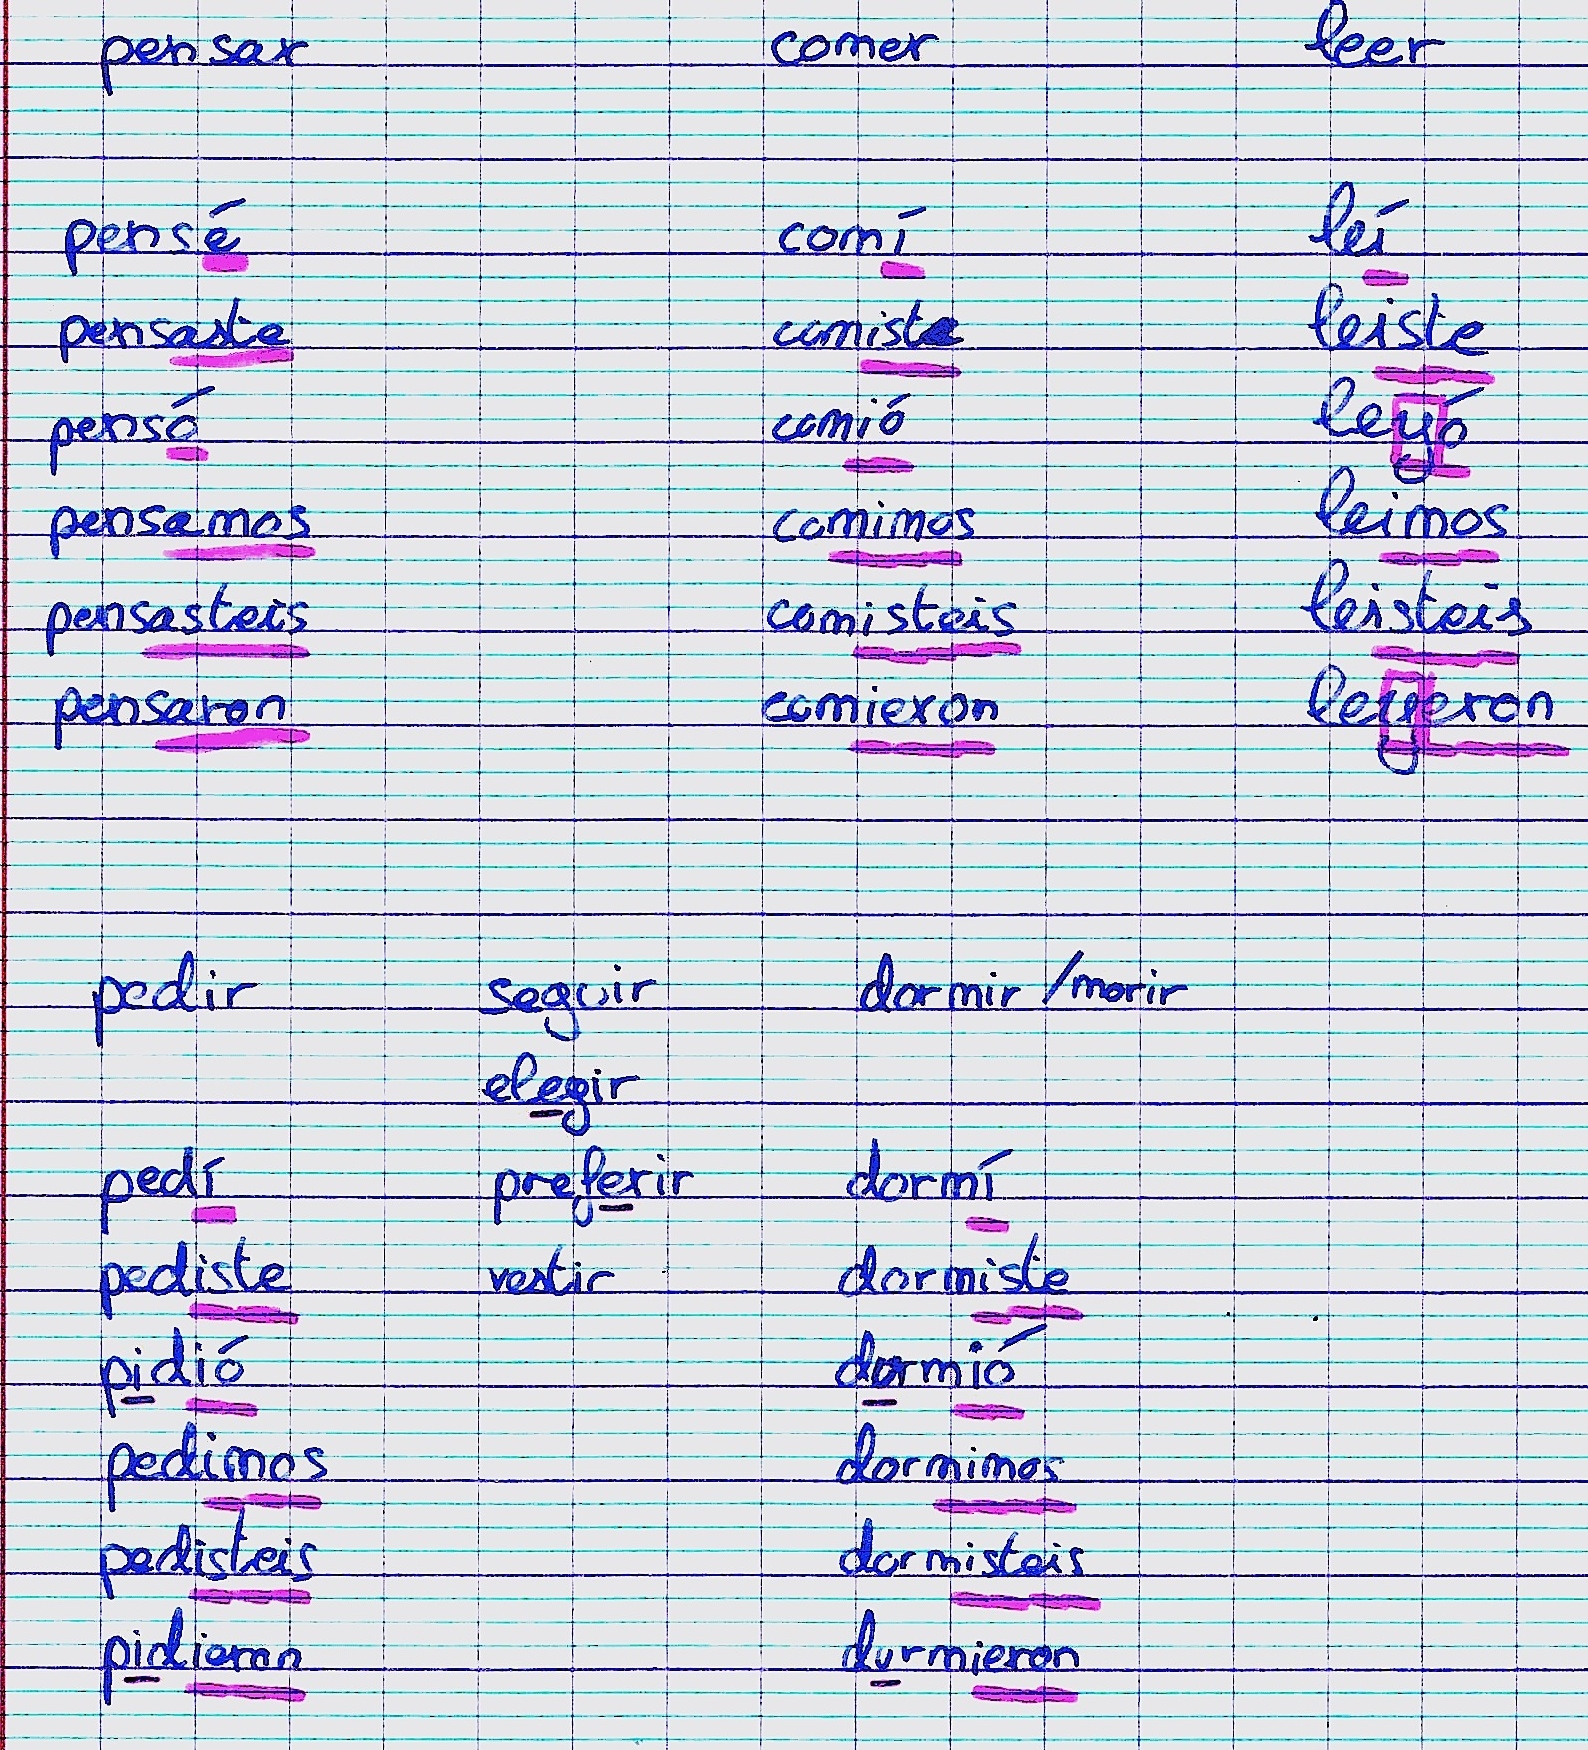 pensar comer leer
pensé comí leí
pensaste comiste leiste
pensó comió leyó
pensamos comimos leimos
pensasteis comisteis leisteis
pensaron comieron leyeron
pedir seguir dormir / morir
elegir
pedí preferir dormí
pediste vestir dormiste
pidió durmió
pedimos dormimos
pedisteis dormisteis
pidieron durmieron